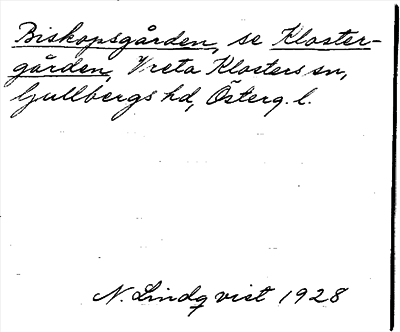 Biskopsgården, se Kloster-
gården, Vreta Klosters sn,
Gullbergs hd, Österg. l.
N. Lindqvist 1928